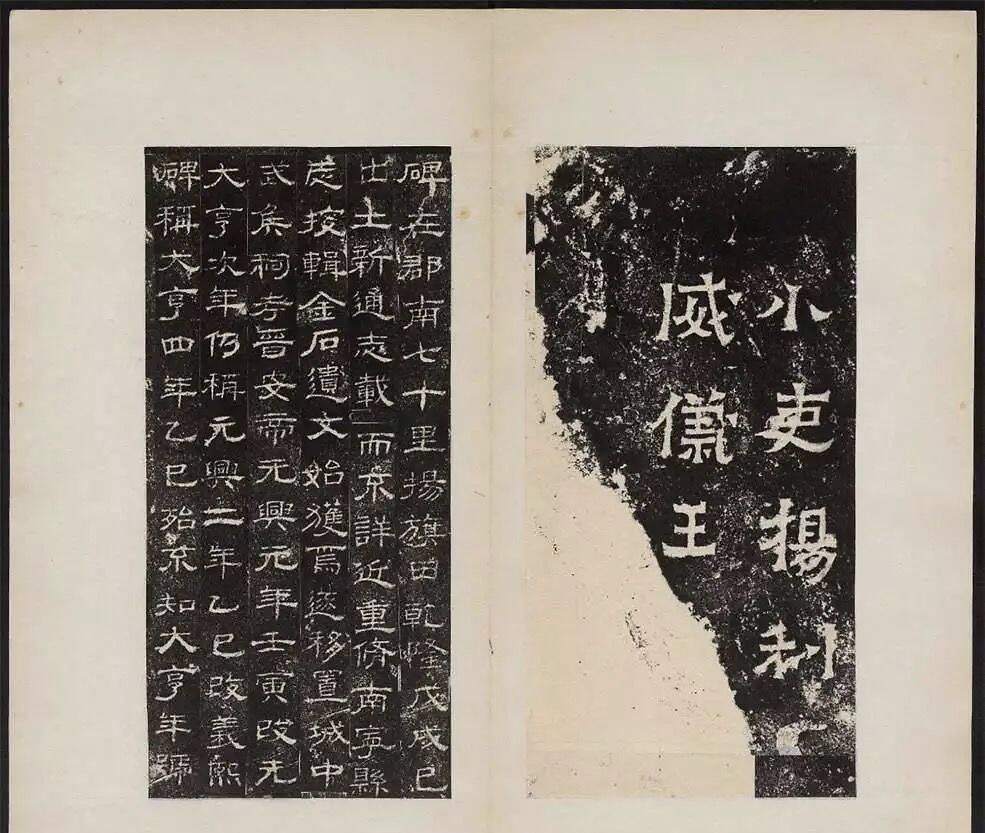 小吏揚利
威儀王
碑在郡南七十里揚旗田乾隆戊戌已
出土新通志載而未詳近重脩南寧縣
志援輯金石遺文始獲焉遂移置城中
武矦祠考晉安帝元興元年壬寅改元
大亨次年仍稱元興二年乙巳改義熙
碑稱大亨四年乙巳殆未知大亨年號